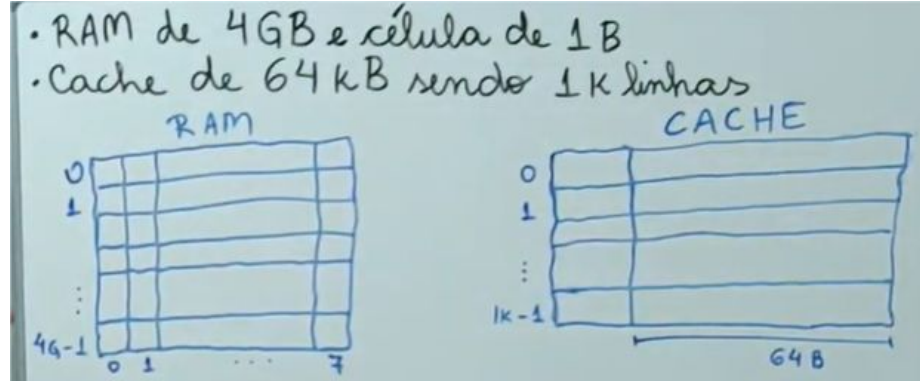 • RAM de 4GB e célula de 1B
• Cache de 64 kB sendo 1K linhas
RAM
CACHE
0
1
⋮
4G-1
0 1 ... 7
0
1
⋮
1K-1
64 B